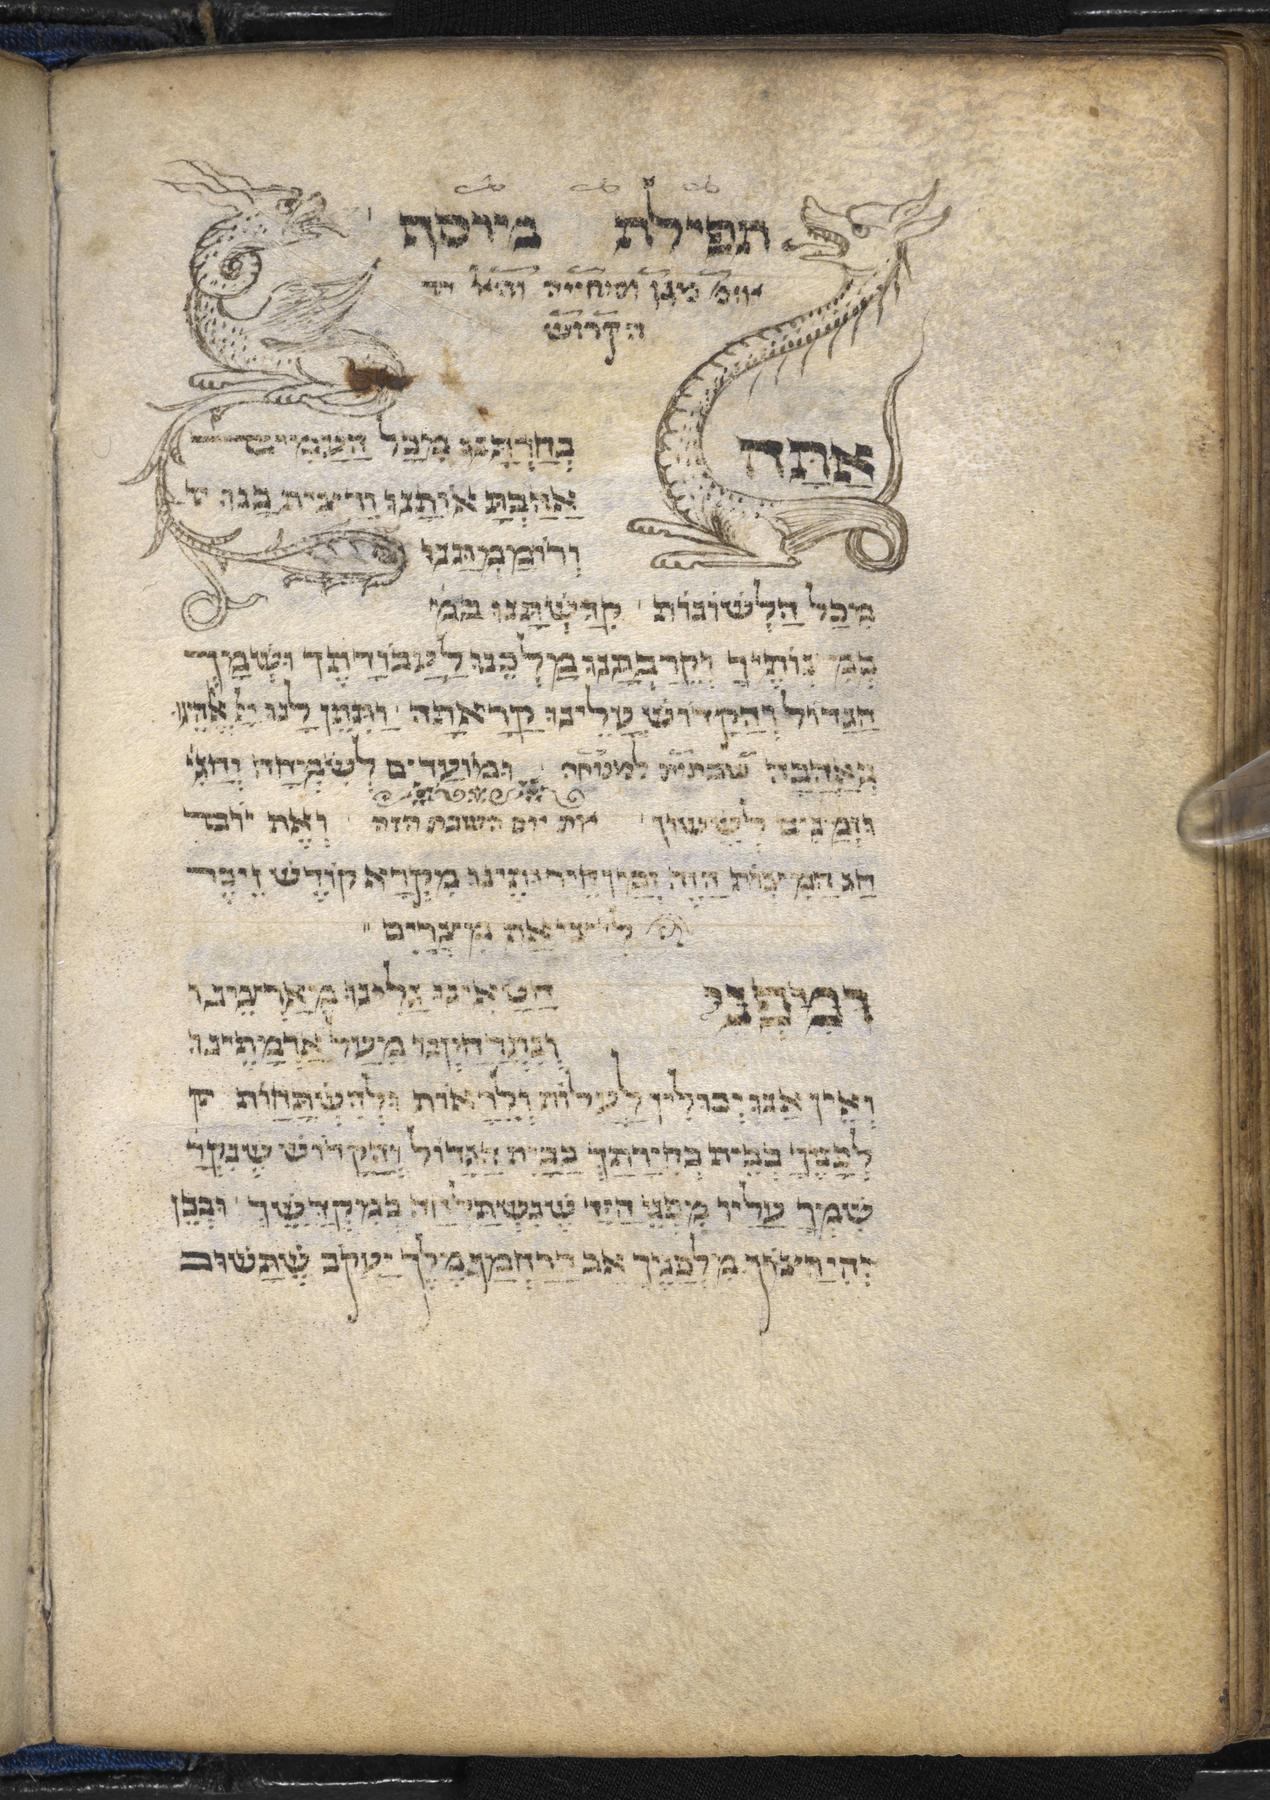 תפילת מוסף
או׳ מגן ומחיה והאל
הקדוש
אַתָּה בְחַרְתָּנוּ מִכָּל הָעַמִים
אָהַבְתָּ אוֹתָנוּ וְרָצִיתָ בָּנוּ
וְרוֹמַמְתָּנוּ
מִכָל הַלְשׁוֹנוֹת קִדַשְׁתָּנוּ במ
בְּמִצְוֹתֶיךָ וְקֵרַבְתָּנוּ מַלְכֵּנוּ לַעֲבוֹדָתֶךָ וְשִׁמְךָ
הַגָדוֹל וְהַקָדוֹשׁ עָלֵינוּ קָרָאתָה וַתִּתֶּן לָנוּ יְיָ אֱהֵינוּ
בְּאַהֲבָה שבתות למנוחה וּמוֹעֲדִים לְשִׂמְחָה חַגִּי׳
וּזְמַנִים לְשָׂשׂוֹן את יום השבת הזה וְאֶת יוֹם
חַג הַמַצוֹת הַזֶה זְמַן חֵירוּתֵינוּ מִקְרָא קוֹדֶשׁ זֵיכֶר
לִיצִיאַת מִצְרַיִם
וּמִפְּנֵי חַטָאֵינוּ גָלִינוּ מֵאַרְצֵינוּ
וְנִתְרַחַקְנוּ מֵעַל אַדְמָתֵינוּ
וְאֵין אָנוּ יְכוֹלִין לַעֲלוֹת וְלֵרָאוֹת וּלְהִשְׁתַחֲוֹת
לְפָנֶיךָ בְּבֵית בְּחִירָתָךְ בַּבַּיִת הַגָדוֹל וְהַקָדוֹשׁ שֶׁנִקְרָ
שִׁמְךָ עָלָיו מִפְּנֵי הַיָד שֶׁנִשְׁתַּלְחָה בְּמִקְדָשֶׁךָ וּבְכֵן
יְהִי רָצוֹן מִלְפָנֶיךָ אב הָרַחֲמָן מֶלֶךְ יַעֲקֹב שֶׁתָּשׁוּב